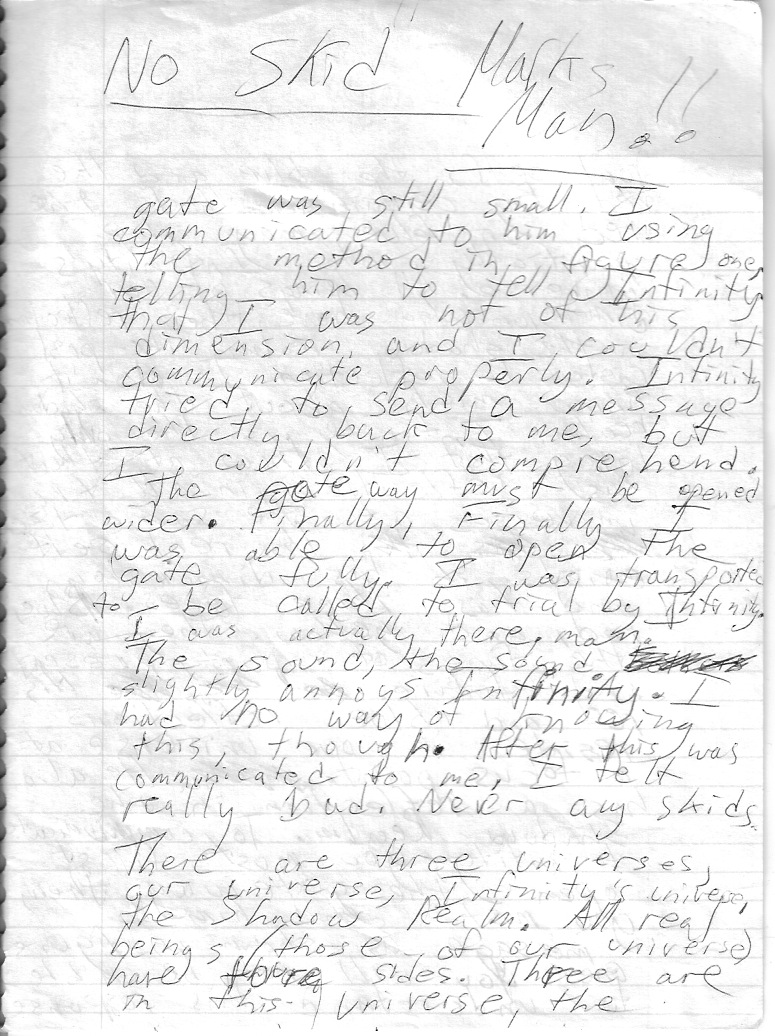 No Skid Marks
Man.!!
gate was still small. I
communicated to him using
the method in figure one,
telling him to tell Infinity
that I was not of his
dimension, and I couldn't
communicate properly. Infinity
tried to send a message
directly back to me, but
I couldn't comprehend.
The gateway must be opened
wider. Finally, Finally I
was able to open the
gate fully. I was transported
to be called to trial by Infinity.
I was actually there, man.
The sound, the sound
slightly annoys Infinity. I
had no way of knowing
this, though. After this was
communicated to me, I felt
really bad. Never any skids.
There are three universes,
our universe, Infinity's universe,
the Shadow Realm. All real
beings (those of our universe)
have sides. Three are
in this universe, the